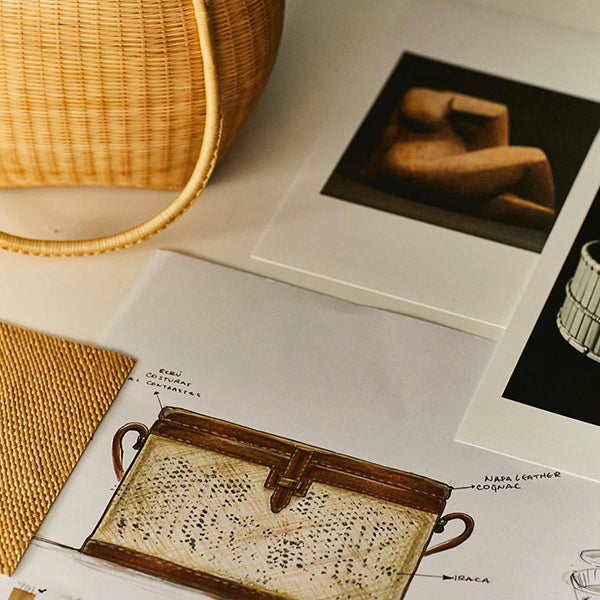 ECRÚ
COSTURAS
AL CONTRASTES
NAPA LEATHER
COGNAC
IRACA